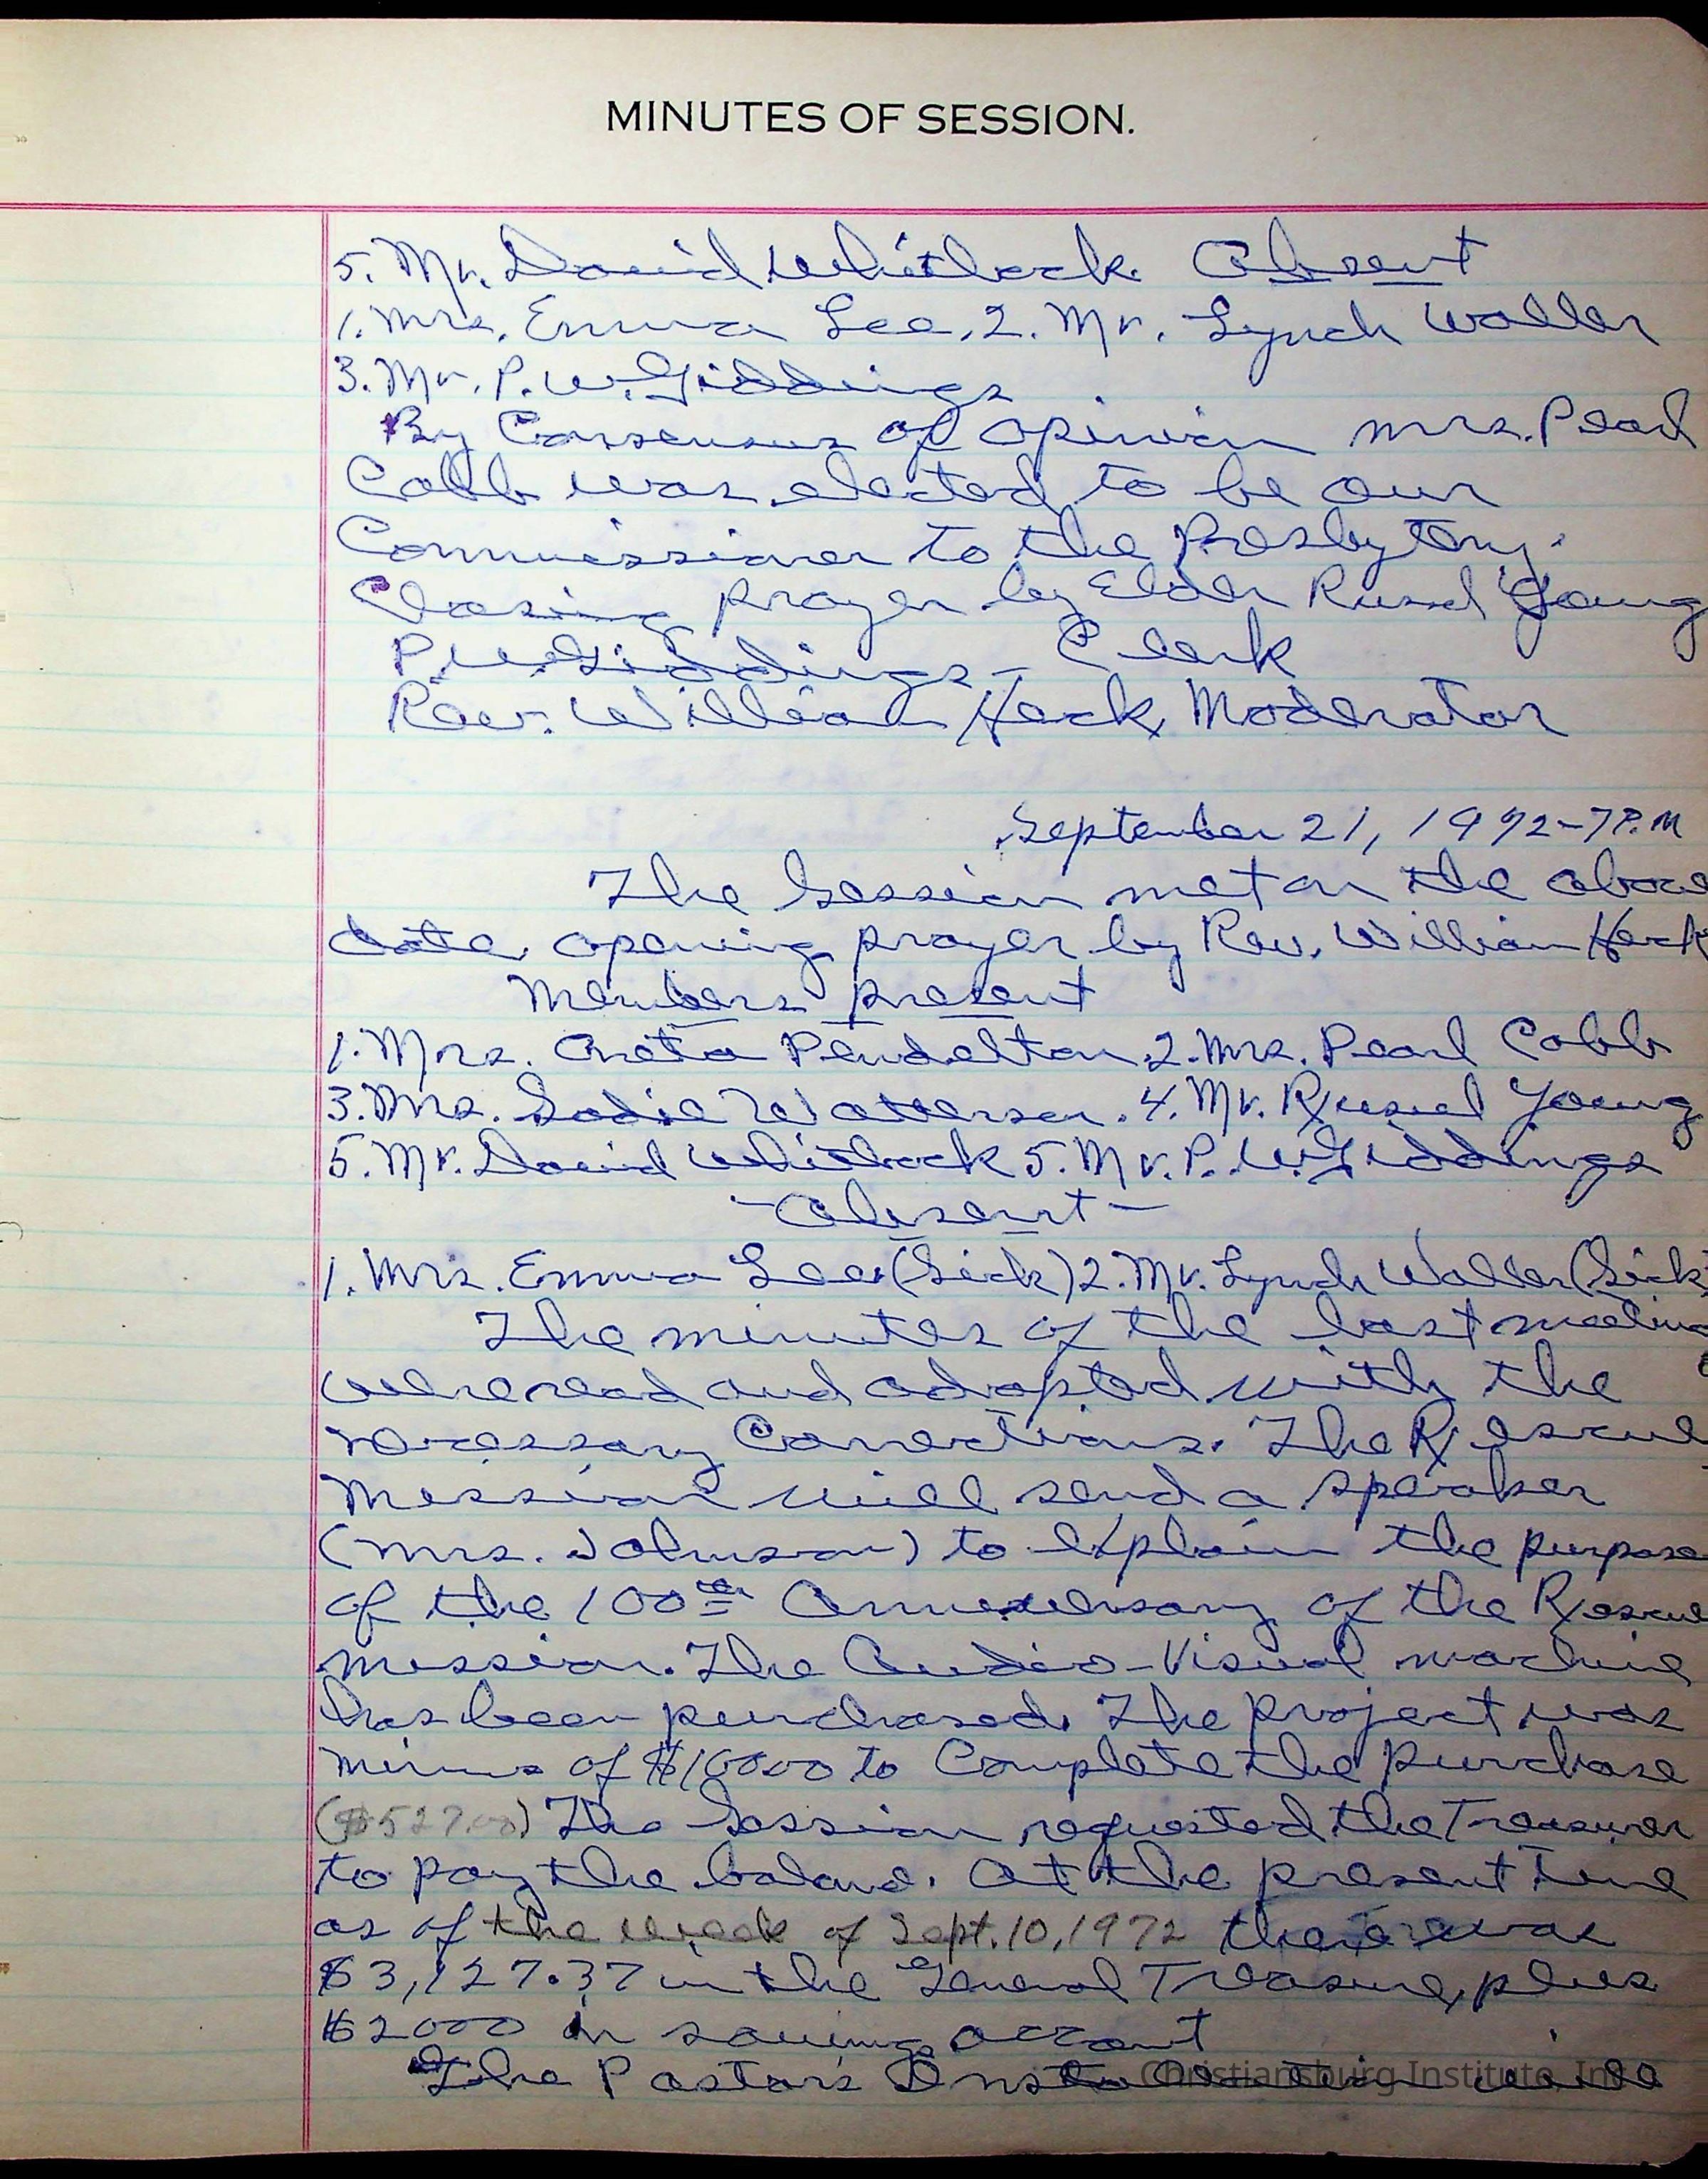 MINUTES OF SESSION.
5. Mr. David Whitlock. Absent
1. Mrs. Emma Lee, 2. Mr. Lynch Waller
3. Mr. P. W. Giddings
By Consensus of opinion Mrs. Pearl
Cobb was elected to be our
Commissioner to the Presbytery.
Closing prayer by Elder Russel Young
P. W. Giddings - Clerk
Rev. William Heck, Moderator
September 21, 1972 - 7 P.M
The Session met on the above
date, opening prayer by Rev. William Heck
Members present
1. Mrs. Oneta Pendelton, 2. Mrs. Pearl Cobb
3. Mrs. Sadie Watterson. 4. Mr. Russel Young
5. Mr. David Whitlock 5. Mr. P. W. Giddings
- Absent -
1. Mrs. Emma Lee (Sick) 2. Mr. Lynch Waller (Sick)
The minutes of the last meeting
were read and adopted with the
necessary Corrections. The Rescue
Mission will send a speaker
(Mrs. Johnson) to explain the purpose
of the 100th Anniversary of the Rescue
mission. The Audio-Visual machine
has been purchased. The project was
minus of $10000 to Complete the purchase
($527.00) The Session requested the Treasurer
to pay the balance. At the present Time
as of the week of Sept. 10, 1972 there was
$3,127.37 in the General Treasure, plus
$2000 in savings account
The Pastor's Installation will
Christiansburg Institute, Inc.